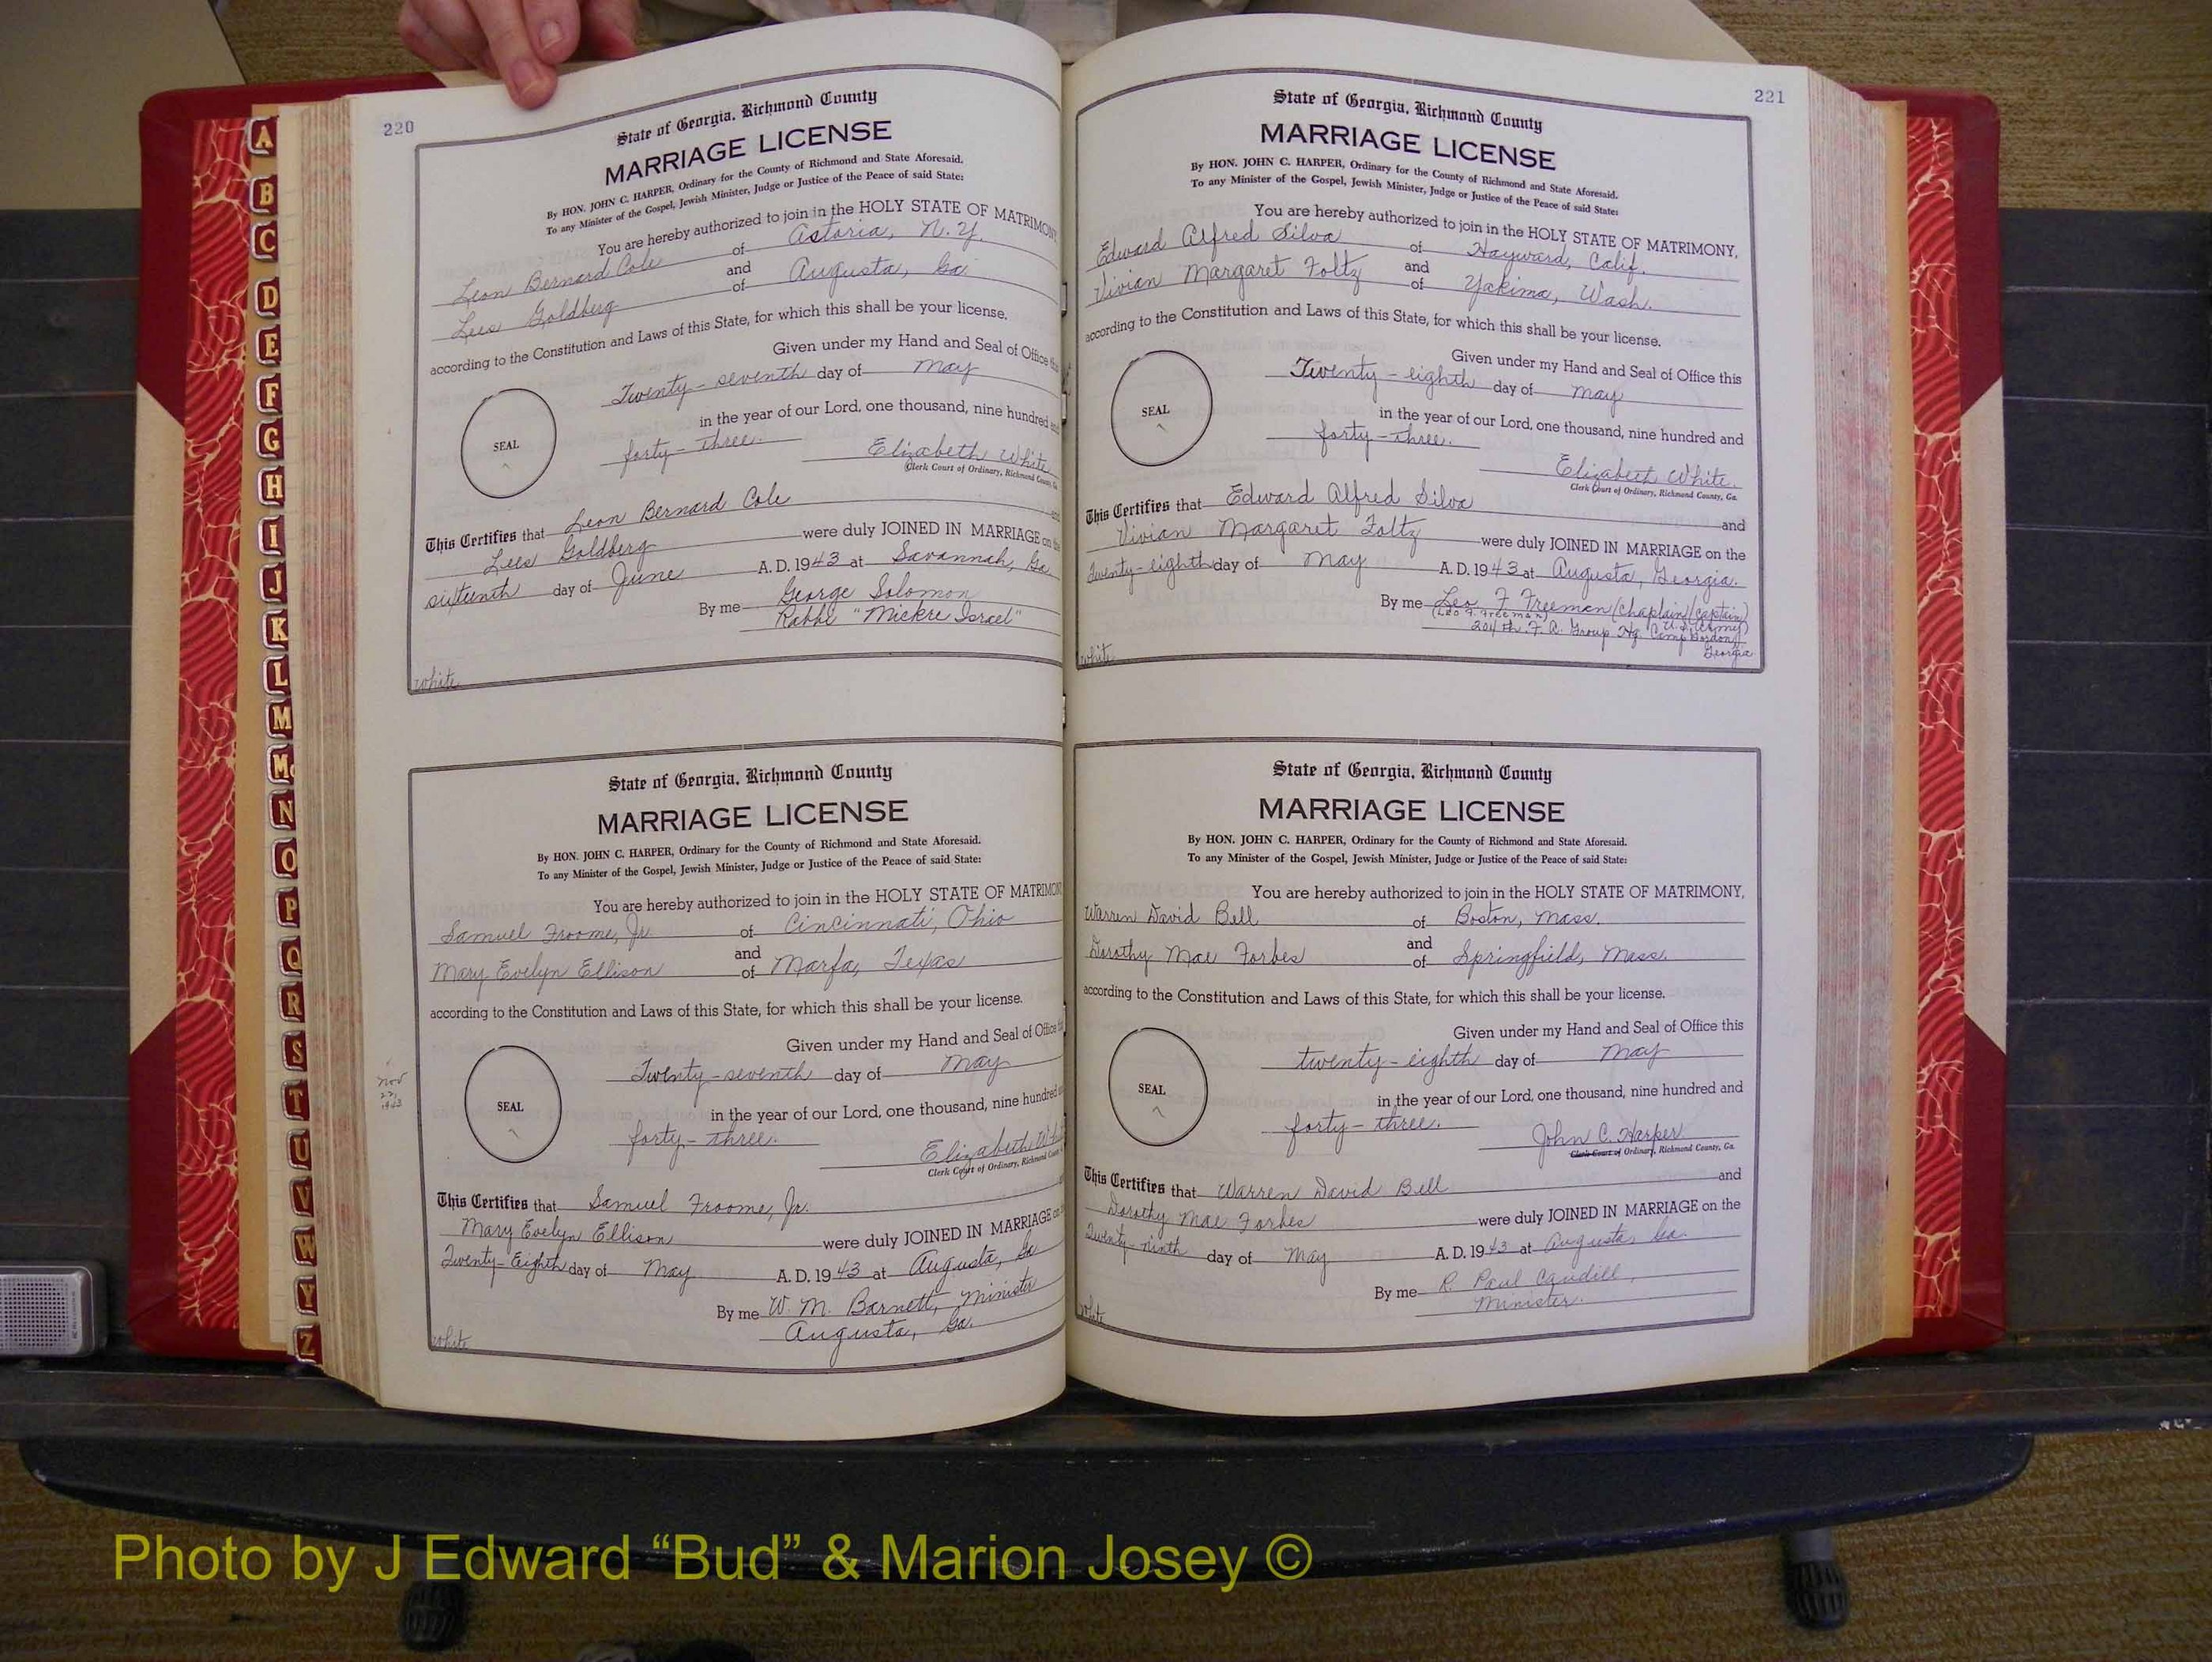 A
B
C
D
E
F
G
H
I
J
K
L
M
Mc
N
O
P
Q
R
S
T
U
V
W
Y
Z
220
State of Georgia, Richmond County
MARRIAGE LICENSE
By HON. JOHN C. HARPER, Ordinary for the County of Richmond and State Aforesaid.
To any Minister of the Gospel, Jewish Minister, Judge or Justice of the Peace of said State:
You are hereby authorized to join in the HOLY STATE OF MATRIMONY,
Leon Bernard Cole of Astoria, N. Y.
and
Lees Goldberg of Augusta, Ga
according to the Constitution and Laws of this State, for which this shall be your license.
Given under my Hand and Seal of Office this
Twenty-seventh day of May
in the year of our Lord, one thousand, nine hundred and
forty-three.
SEAL
Elizabeth White
Clerk Court of Ordinary, Richmond County, Ga.
This Certifies that Leon Bernard Cole and
Lees Goldberg were duly JOINED IN MARRIAGE on the
sixteenth day of June A. D. 1943 at Savannah, Ga
By me George Solomon
Rabbi "Mickre Israel"
White
State of Georgia, Richmond County
MARRIAGE LICENSE
By HON. JOHN C. HARPER, Ordinary for the County of Richmond and State Aforesaid.
To any Minister of the Gospel, Jewish Minister, Judge or Justice of the Peace of said State:
You are hereby authorized to join in the HOLY STATE OF MATRIMON
Samuel Froome, Jr. of Cincinnati, Ohio
and
Mary Evelyn Ellison of Marfa, Texas
according to the Constitution and Laws of this State, for which this shall be your license.
Given under my Hand and Seal of Office
Twenty-seventh day of May
in the year of our Lord, one thousand, nine hundred
forty-three.
SEAL
Nov
22,
1943
Elizabeth Wh
Clerk Court of Ordinary, Richmond County
This Certifies that Samuel Froome, Jr.
Mary Evelyn Ellison were duly JOINED IN MARRIAGE on
Twenty-Eighth day of May A. D. 1943 at Augusta, Ga
By me W. M. Barnett, Minister
Augusta, Ga.
White
221
State of Georgia, Richmond County
MARRIAGE LICENSE
By HON. JOHN C. HARPER, Ordinary for the County of Richmond and State Aforesaid.
To any Minister of the Gospel, Jewish Minister, Judge or Justice of the Peace of said State:
You are hereby authorized to join in the HOLY STATE OF MATRIMONY,
Edward Alfred Silva of Hayward, Calif.
and
Vivian Margaret Foltz of Yakima, Wash.
according to the Constitution and Laws of this State, for which this shall be your license.
Given under my Hand and Seal of Office this
Twenty-eighth day of May
in the year of our Lord, one thousand, nine hundred and
forty-three.
SEAL
Elizabeth White.
Clerk Court of Ordinary, Richmond County, Ga.
This Certifies that Edward Alfred Silva and
Vivian Margaret Foltz were duly JOINED IN MARRIAGE on the
Twenty-eighth day of May A. D. 1943 at Augusta, Georgia.
By me Leo F Freeman (Chaplain (Captain)
(Leo F. Freeman) U.S. Army)
204th. F. A. Group Hq. Camp Gordon
Georgia
White
State of Georgia, Richmond County
MARRIAGE LICENSE
By HON. JOHN C. HARPER, Ordinary for the County of Richmond and State Aforesaid.
To any Minister of the Gospel, Jewish Minister, Judge or Justice of the Peace of said State:
You are hereby authorized to join in the HOLY STATE OF MATRIMONY,
Warren David Bell of Boston, Mass.
and
Dorothy Mae Forbes of Springfield, Mass.
according to the Constitution and Laws of this State, for which this shall be your license.
Given under my Hand and Seal of Office this
twenty-eighth day of May
in the year of our Lord, one thousand, nine hundred and
forty-three.
SEAL
John C. Harper
Clerk Court of Ordinary, Richmond County, Ga.
This Certifies that Warren David Bell and
Dorothy Mae Forbes were duly JOINED IN MARRIAGE on the
Twenty-ninth day of May A. D. 1943 at Augusta Ga.
By me R. Paul Caudill,
Minister.
White
Photo by J Edward “Bud” & Marion Josey ©